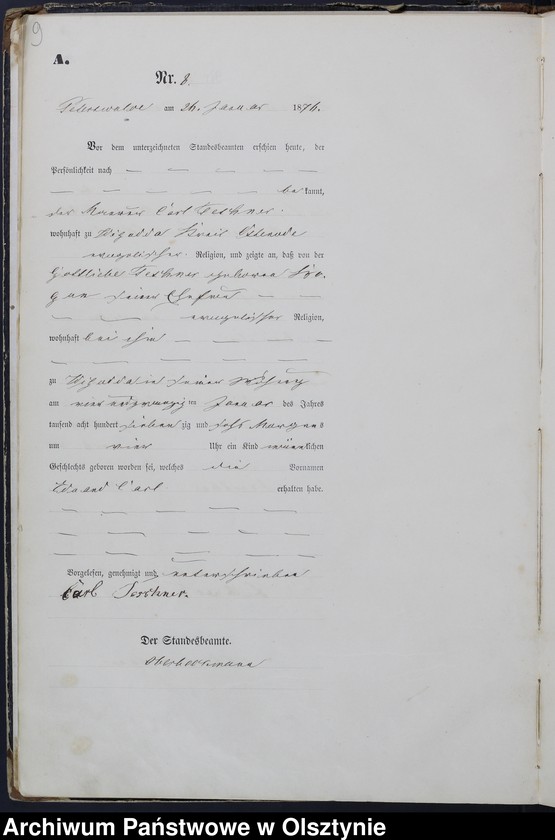 9
A.
Nr. 8.
Peterswalde am 26. Januar 1876.
Vor dem unterzeichneten Standesbeamten erschien heute, der
Persönlichkeit nach
be kannt,
der Maurer Carl Teschner.
wohnhaft zu Kreis Osterode
evangelischer Religion, und zeigte an, daß von der
Gottliebe Teschner geborene
seiner Ehefrau
evangelischer Religion,
wohnhaft bei ihm
zu in seiner Wohnung
am vier und zwanzig ten Januar des Jahres
tausend acht hundert sieben zig und sechs Morgens
um vier Uhr ein Kind männlichen
Geschlechts geboren worden sei, welches die Vornamen
Eduard Carl erhalten habe.
Vorgelesen, genehmigt und unterschrieben
Carl Teschner.
Der Standesbeamte.
Archiwum Państwowe w Olsztynie